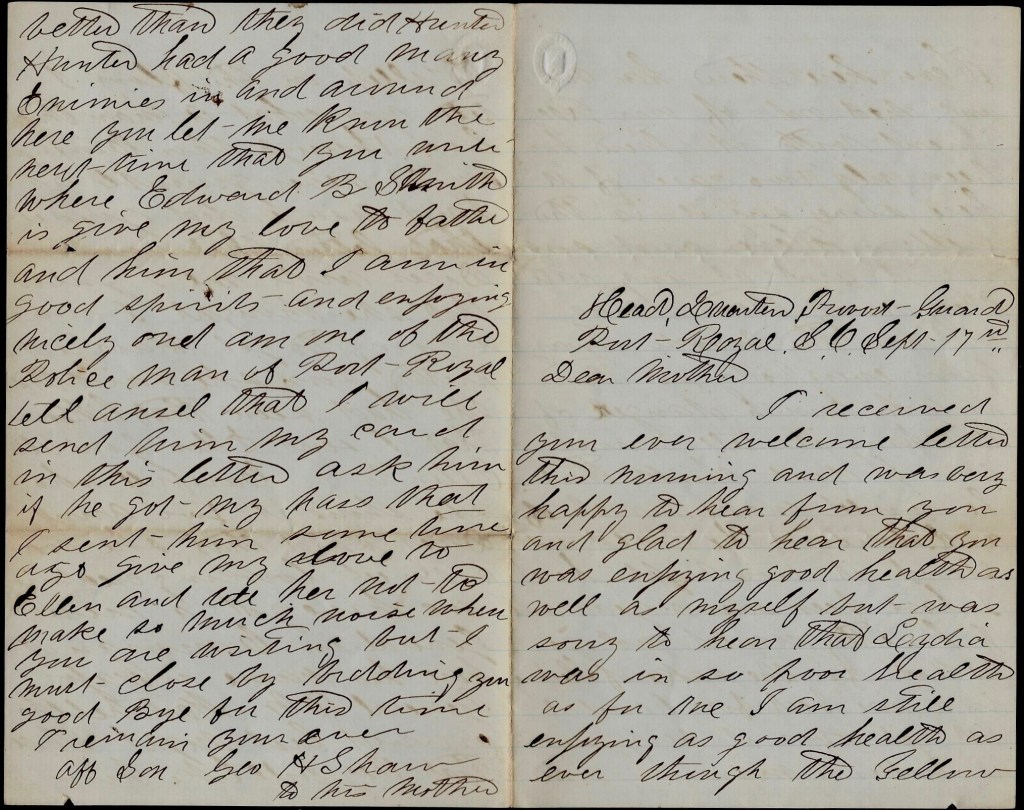 Head, Quarters, Provost-Guard
Port-Royal. S. C. Sept-17nd
Dear Mother
I received
your ever welcome letter
this morning and was very
happy to hear from you
and glad to hear that you
was enjoying good health as
well as myself but-was
sorry to hear that Lydia
was in so poor health
as for me I am still
enjoying as good health as
ever though the Yellow
better than they did Hunter
Hunter had a good many
Enimies in and around
here you let-me know the
next-time that you write
where Edward B Smith
is give my love to father
and him that I am in
good spirits-and enjoying
nicely and am one of the
Police man of Port-Royal
tell ansel that I will
send him my card
in this letter ask him
if he got-my pass that
I sent-him some time
ago give my love to
Ellen and tell her not-to
make so much noise when
you are writing but-I
must-close by bidding you
good Bye for this time
I remain your ever
aff Son. Geo H Shaw
to his Mother